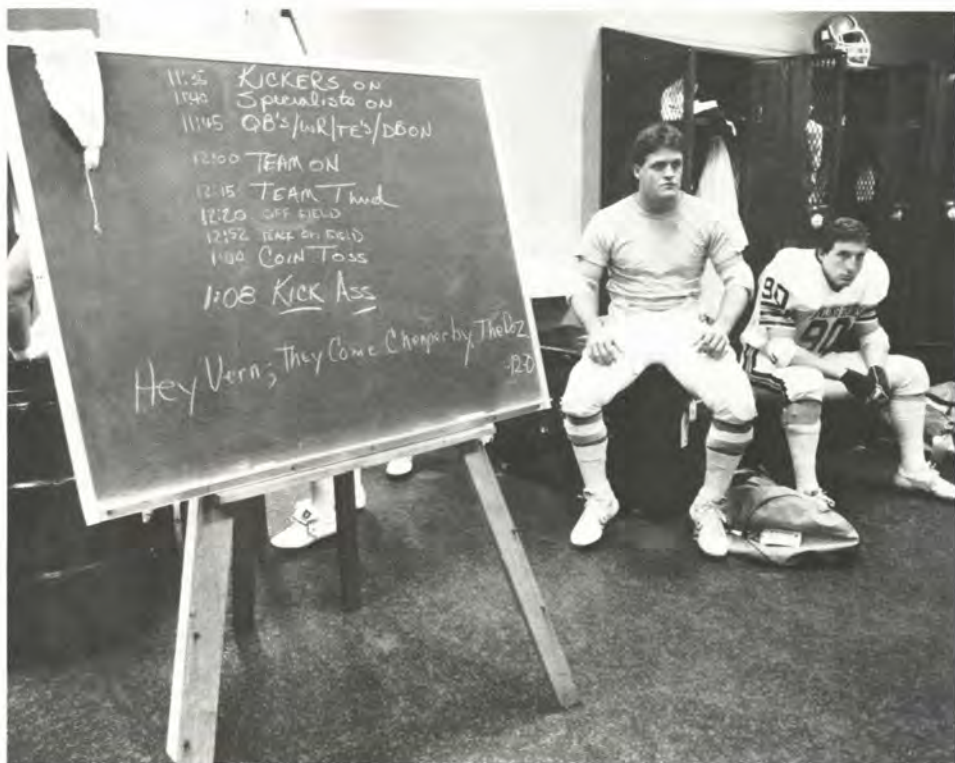 11:35 KICKERS ON
11:40 Specialists ON
11:45 QB's/WR/TE's/DB ON
12:00 TEAM ON
12:15 TEAM Thud
12:20 OFF FIELD
12:52 BACK ON FIELD
1:00 COIN TOSS
1:08 KICK ASS
Hey Vern; They Come Cheaper by The Doz
12-0
90
90